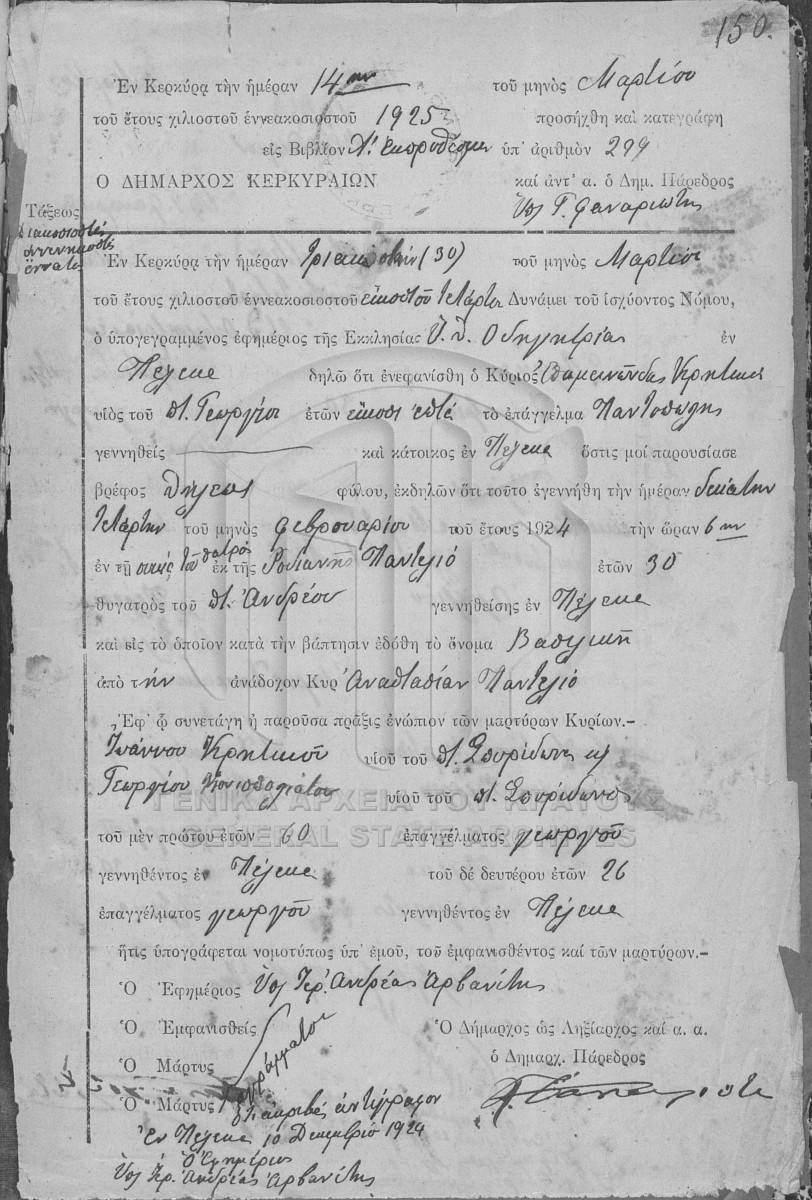 150.
Ἐν Κερκύρᾳ τὴν ἡμέραν 14ην τοῦ μηνὸς Μαρτίου
τοῦ ἔτους χιλιοστοῦ ἐννεακοσιοστοῦ 1925 προσήχθη καὶ κατεγράφη
εἰς Βιβλίον Λ. Ἐκπροθέσμων ὑπ' ἀριθμὸν 299
Ο ΔΗΜΑΡΧΟΣ ΚΕΡΚΥΡΑΙΩΝ καὶ ἀντ' α. ὁ Δημ. Πάρεδρος
Ὑπ. Γ. Φαναριώτης
Τάξεως
διακοσιοστὴ
ἐννενηκοστὴ
ἐννάτη
Ἐν Κερκύρᾳ τὴν ἡμέραν τριακοστήν (30) τοῦ μηνὸς Μαρτίου
τοῦ ἔτους χιλιοστοῦ ἐννεακοσιοστοῦ εἰκοστοῦ τετάρτου Δυνάμει τοῦ ἰσχύοντος Νόμου,
ὁ ὑπογεγραμμένος ἐφημέριος τῆς Ἐκκλησίας Ὑ. Θ. Οδηγητρίας ἐν
Πέλεκα δηλῶ ὅτι ἐνεφανίσθη ὁ Κύριος Ἐπαμεινώνδας Κρητικὸς
υἱὸς τοῦ π. Γεωργίου ἐτῶν εἴκοσι ἑπτὰ τὸ ἐπάγγελμα Παντοπώλης
γεννηθεὶς καὶ κάτοικος ἐν Πέλεκα ὅστις μοί παρουσίασε
βρέφος θήλεος φύλου, ἐκδηλῶν ὅτι τοῦτο ἐγεννήθη τὴν ἡμέραν δεκάτην
τετάρτην τοῦ μηνὸς Φεβρουαρίου τοῦ ἔτους 1924 τὴν ὥραν 6ην
ἐν τῇ οἰκίᾳ τοῦ πατρός ἐκ τῆς Ροδιανῆς Παντελιό ἐτῶν 30
θυγατρὸς τοῦ π. Ἀνδρέου γεννηθείσης ἐν Πέλεκα
καὶ εἰς τὸ ὁποῖον κατὰ τὴν βάπτισιν ἐδόθη τὸ ὄνομα Βασιλικὴ
ἀπὸ τὴν ἀνάδοχον Κυρ Ἀναστασίαν Παντελιό
Ἐφ' ᾧ συνετάγη ἡ παροῦσα πρᾶξις ἐνώπιον τῶν μαρτύρων Κυρίων.—
Ἰωάννου Κρητικοῦ υἱοῦ τοῦ π. Σπυρίδωνος κ
Γεωργίου υἱοῦ τοῦ π. Σπυρίδωνος
ΓΕΝΙΚΑ ΑΡΧΕΙΑ ΤΟΥ ΚΡΑΤΟΥΣ
GENERAL STATE ARCHIVES
τοῦ μὲν πρώτου ἐτῶν 60 ἐπαγγέλματος γεωργοῦ
γεννηθέντος ἐν Πέλεκα τοῦ δέ δευτέρου ἐτῶν 26
ἐπαγγέλματος γεωργοῦ γεννηθέντος ἐν Πέλεκα
ἥτις ὑπογράφεται νομοτύπως ὑπ' ἐμοῦ, τοῦ ἐμφανισθέντος καί τῶν μαρτύρων.—
Ὁ Ἐφημέριος Ὑπ. Ἱερ. Ἀνδρέας Ἀρβανίτης
Ὁ Ἐμφανισθεὶς
Ὁ Μάρτυς ἀγράμματοι
Ὁ Μάρτυς
Ὁ Δήμαρχος ὡς Ληξίαρχος καί α. α.
ὁ Δημαρχ. Πάρεδρος
Ὅτι ἀκριβὲς ἀντίγραφον
Ἐν Πέλεκα 10 Δεκεμβρίου 1924
Ὁ Ἐφημέριος
Ὑπ. Ἱερ. Ἀνδρέας Ἀρβανίτης